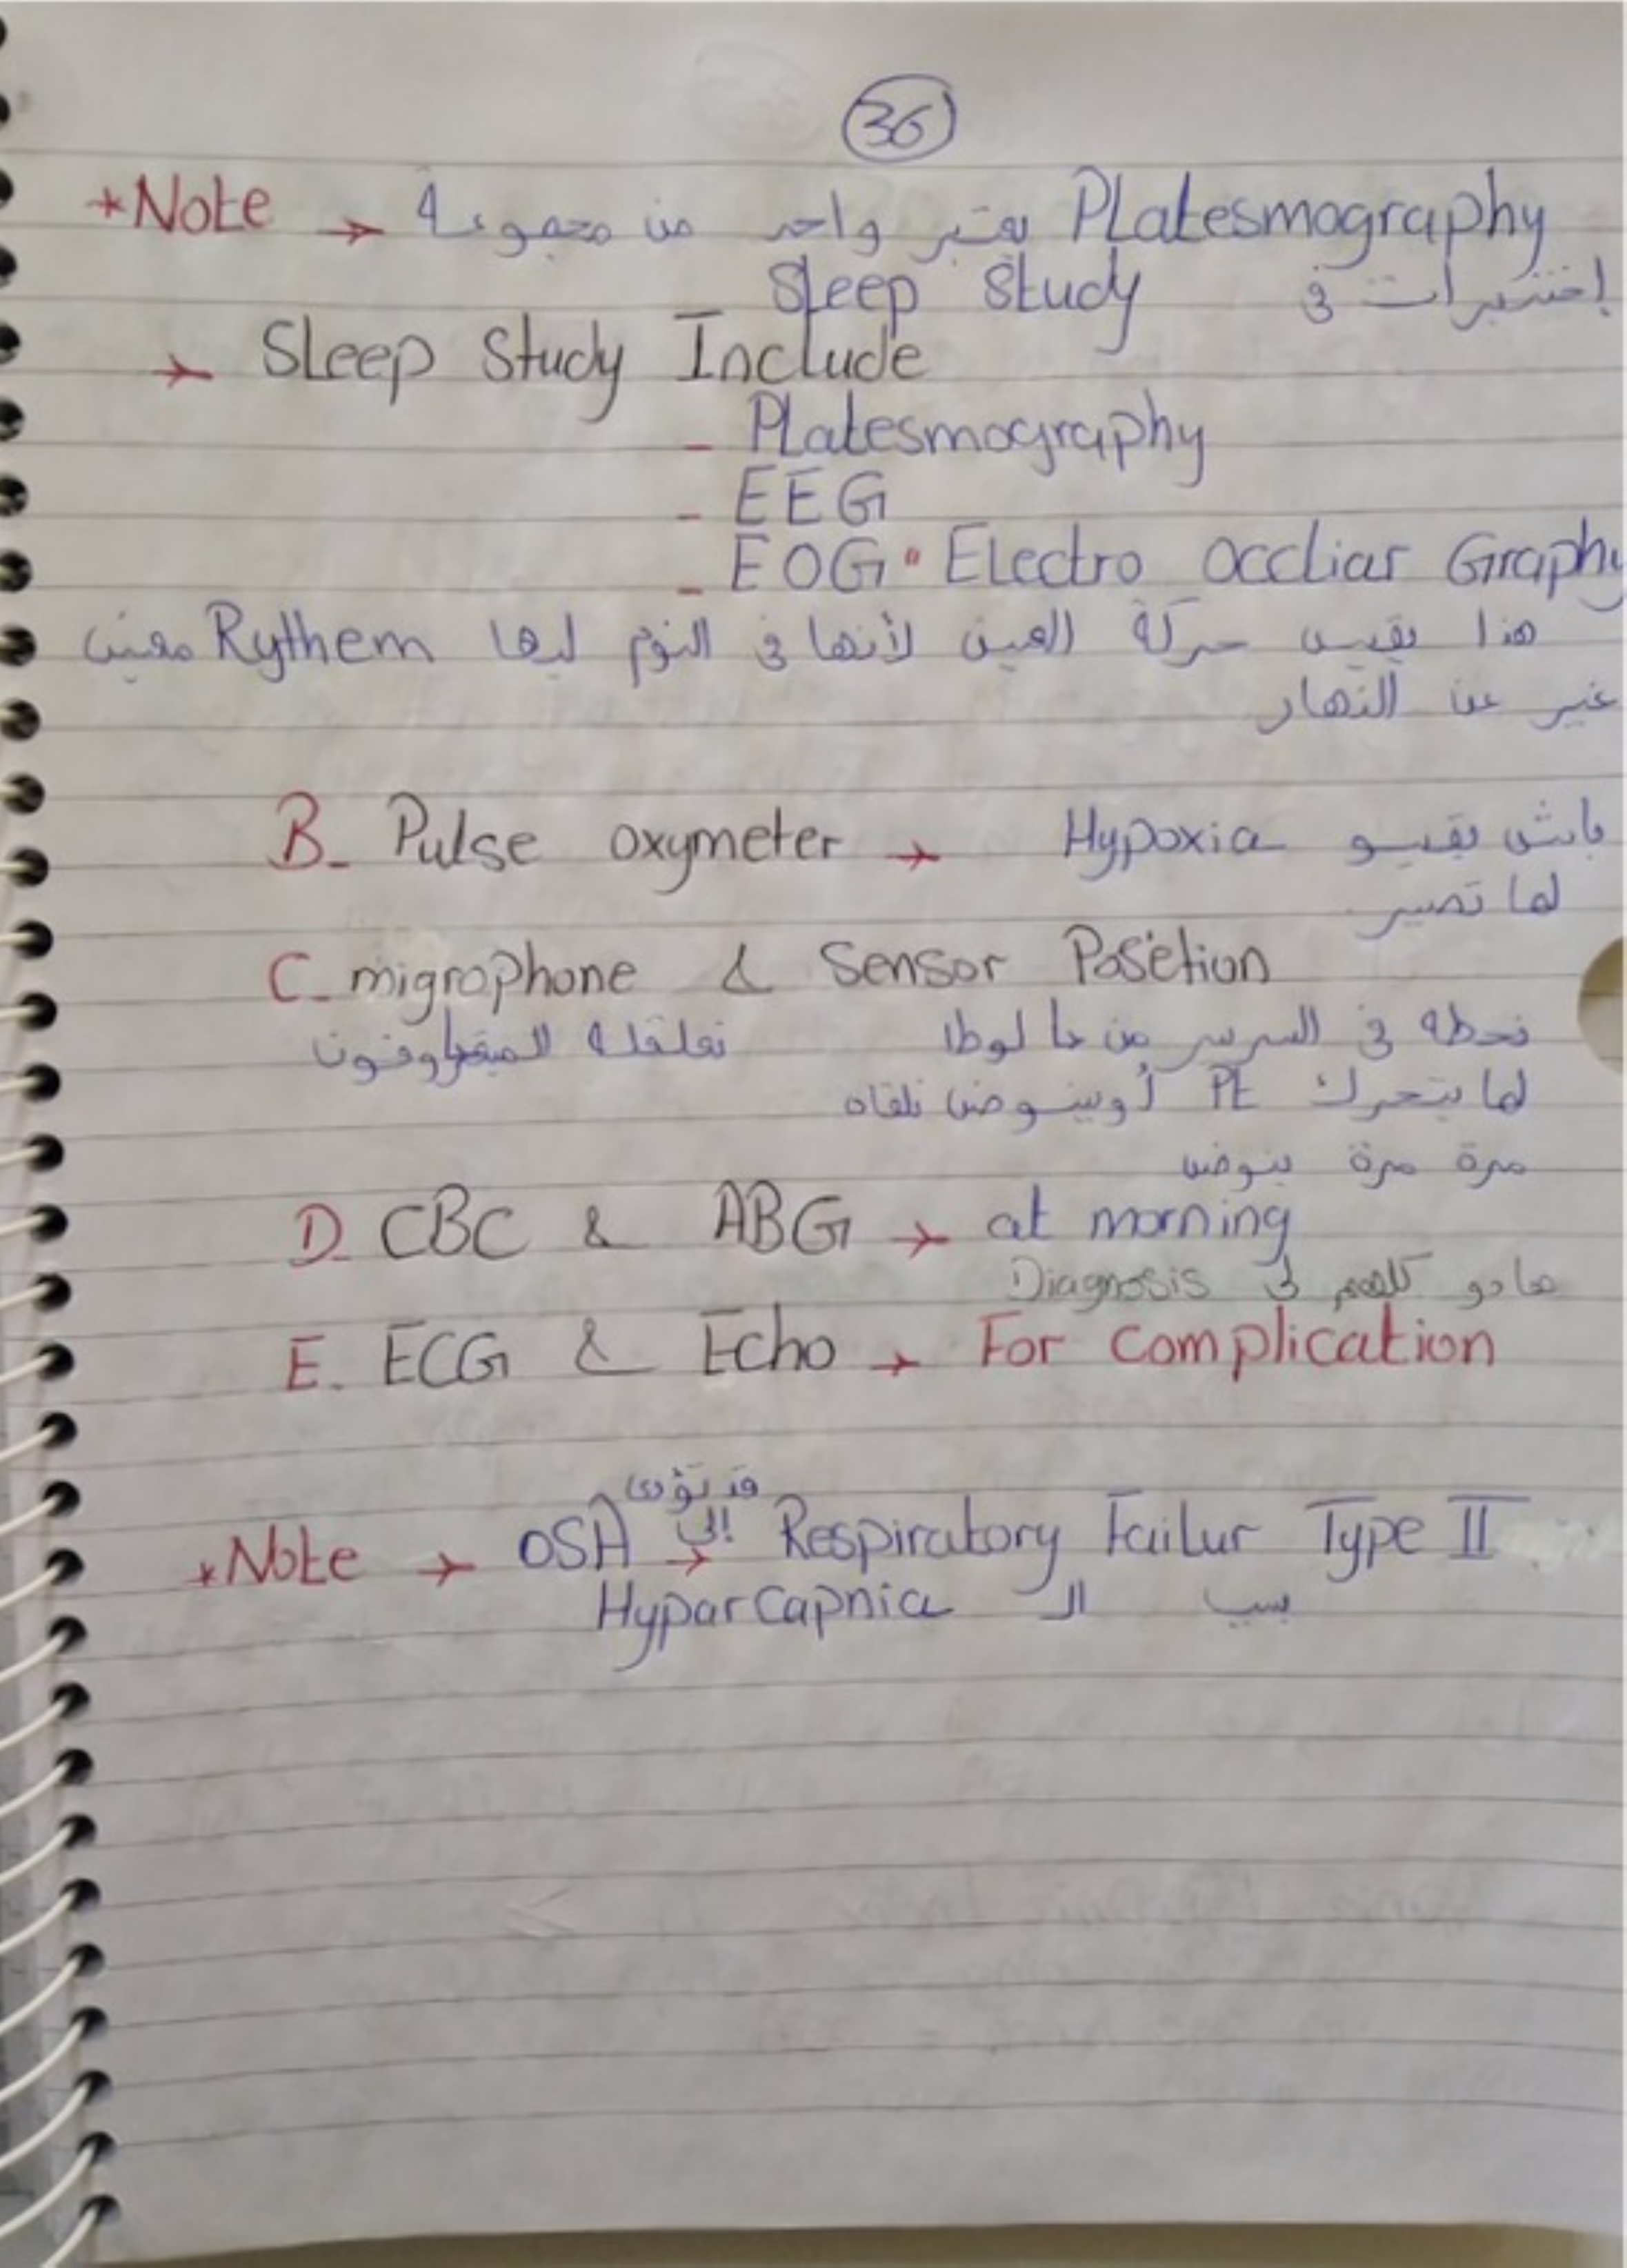 36
*Note → Platesmography يعتبر واحد من مجموعة
إختبرات في Sleep Study
→ Sleep Study Include
- Platesmography
- EEG
- EOG " Electro occliar Graphy
هذا يقيس حركة العين لأنها في النوم ليها Rythem معين
غير عن النهار
B- Pulse oxymeter → باش نقيسو Hypoxia
لما تصير
C- migrophone & Sensor Posetion
نحطه في السرير من لوطا نعلقله الميقروفون
لما يتحرك PE أو ينوض نلقاه
مرة مرة ينوض
D- CBC & ABG → at morning
هادو كلهم في Diagnosis
E. ECG & Echo → For Complication
قد تؤدى
*Note → OSA إلى → Respiratory Failur Type II
بسبب الـ Hyparcapnia